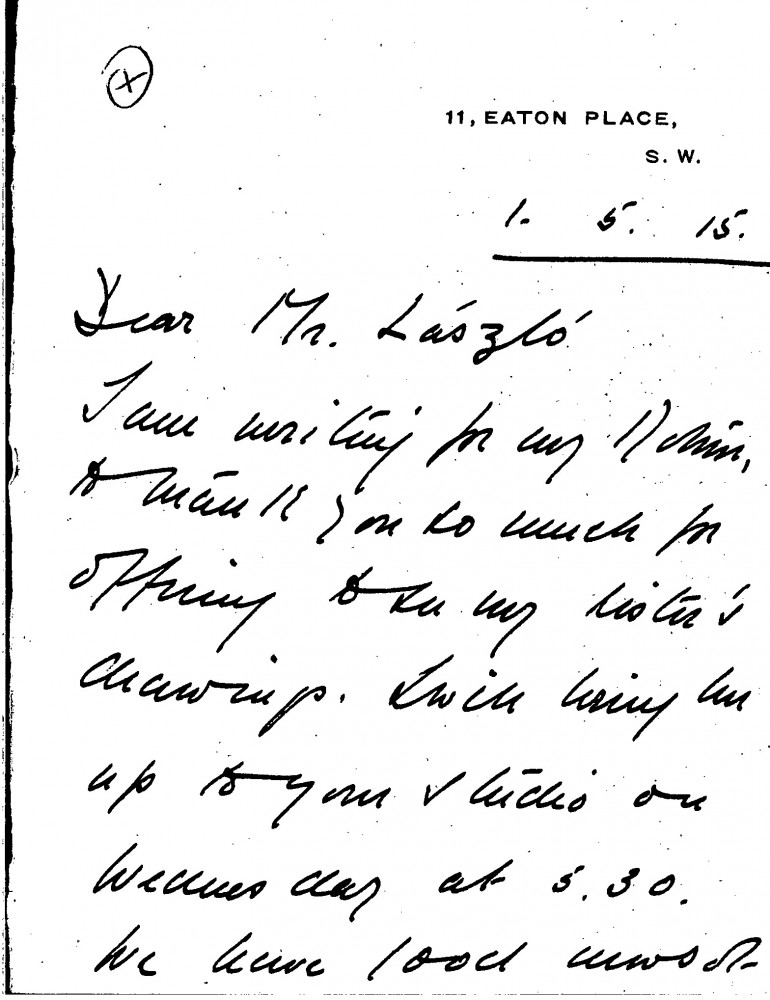 11, EATON PLACE,
S. W.
1. 5. 15.
Dear Mr. László
I am writing for my
to thank you so much for
offering to see my sister's
drawings. I will bring her
up to your studio on
Wednesday at 5.30.
We have good news of